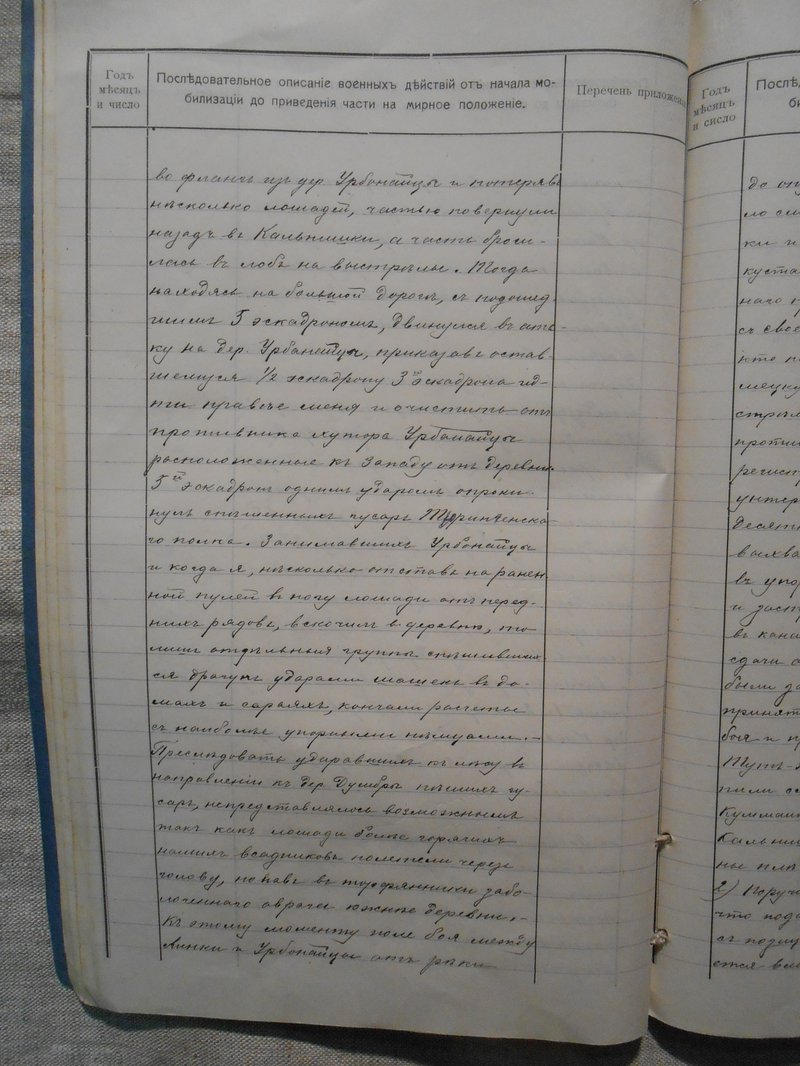 Годъ
мѣсяцъ
и число
Послѣдовательное описаніе военныхъ дѣйствій отъ начала мо-
билизаціи до приведенія части на мирное положеніе.
Перечень приложен
во флангъ изъ дер. Урбонайцы и потерявъ
нѣсколько лошадей, частью повернули
назадъ въ Кальнишки, а часть броси-
лась въ лобъ на выстрѣлы. Тогда
находясь на большой дорогѣ, съ подошед-
шимъ 5 эскадрономъ, двинулся въ ата-
ку на дер. Урбонайцы, приказавъ остав-
шемуся 1/2 эскадрону 3го эскадрона ид-
ти правѣе меня и очистить отъ
противника хутора Урбонайцы
расположенные къ западу отъ деревни.
5ый эскадронъ однимъ ударомъ опроки-
нулъ спѣшенныхъ гусаръ
го полка. Занимавшихъ Урбонайцы
и когда я, нѣсколько отставъ на ранен-
ной пулей въ ногу лошади отъ перед-
нихъ рядовъ, вскочилъ въ деревню, то
лишь отдѣльныя группы спѣшивших
ся драгунъ ударами шашекъ въ до-
махъ и сараяхъ, кончали расчеты
съ наиболѣе упорными нѣмцами.-
Преслѣдовать ударавшихъ къ лѣсу въ
направленіи къ дер. Думбры пѣшихъ гу-
саръ, непредставлялось возможнымъ
такъ какъ лошади болѣе горячихъ
нашихъ всадниковъ полетѣли черезъ
голову, попавъ въ торфянники забо-
лоченнаго оврага южнѣе деревни.-
Къ этому моменту поле боя между
Линки и Урбонайцы отъ рѣки
Годъ
мѣсяцъ
и сисло
Послѣд
би
до оп
ло сл
ки и
куста
наго п
съ свое
кто п
мецку
стрѣл
проти
регист
унтер
десят
выхва
въ упо
и заст
въ кана
сдачи о
были за
принят
боя и п
Тутъ
пили с
Кальни
ны плѣ
2) Поруч
что подъ
съ подпо
ется в